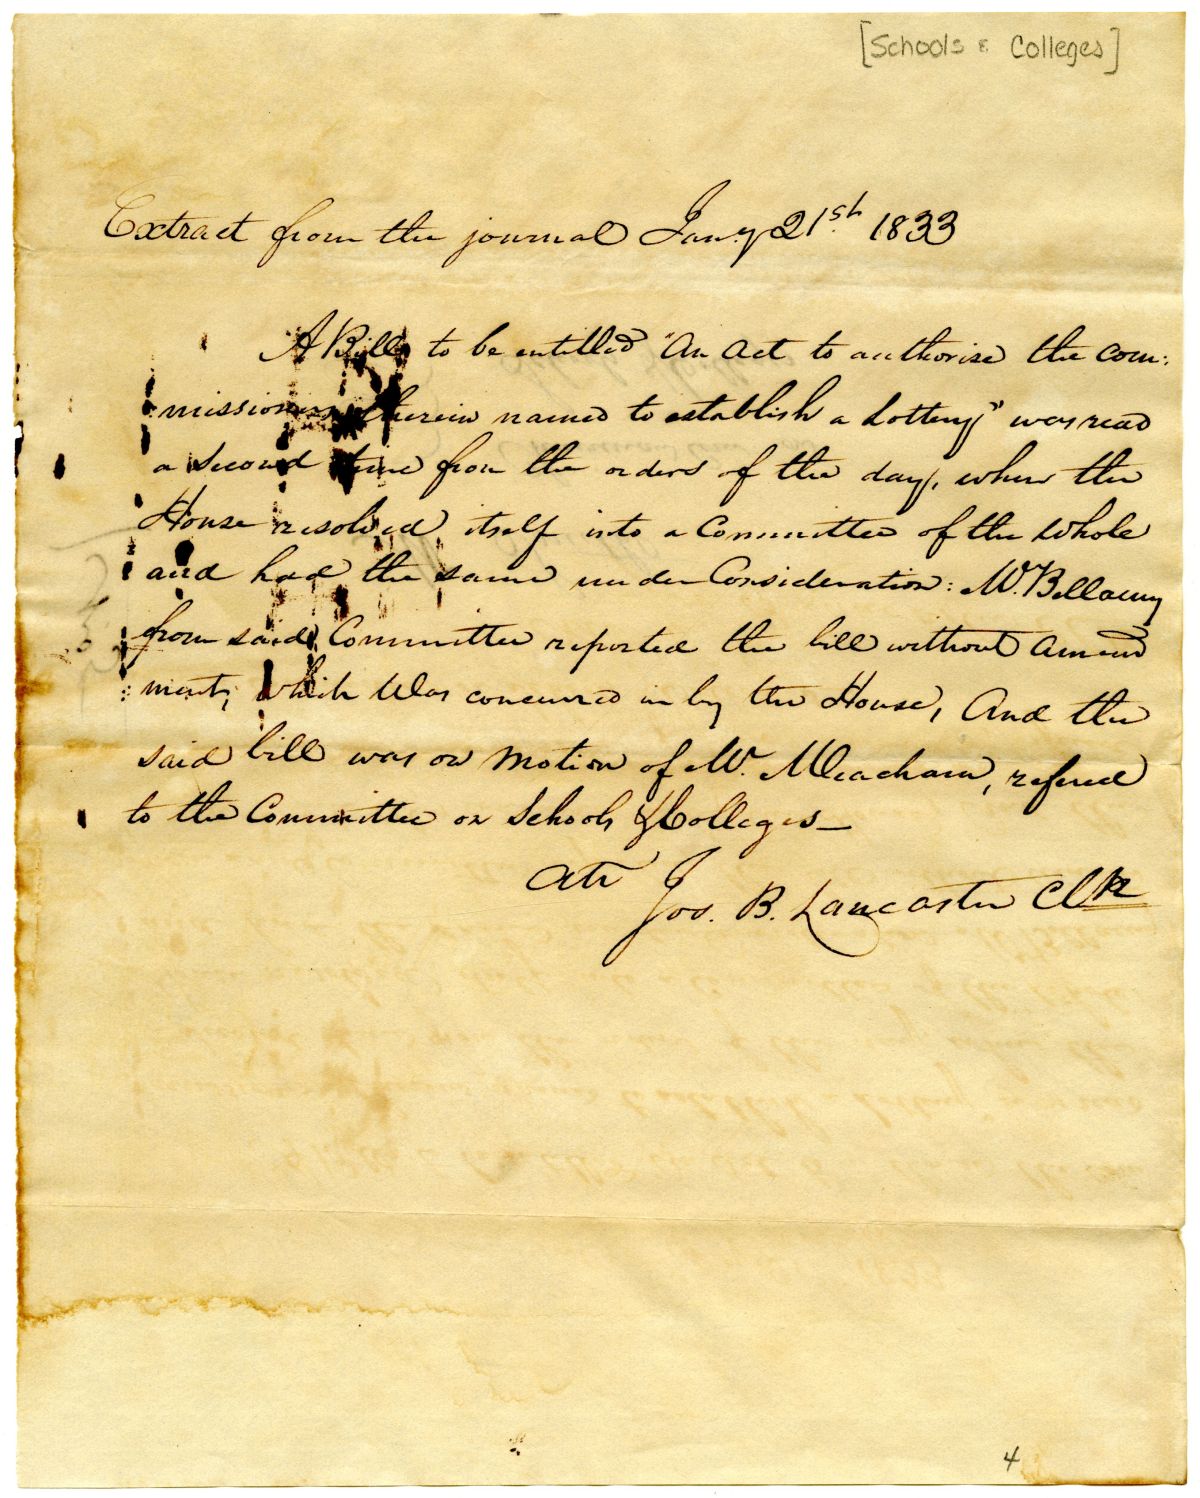 [Schools & Colleges]
Extract from the journal Jany 21st. 1833
A Bill to be entitled "An Act to authorise the com:
:missioners therein named to establish a Lottery" was read
a second time from the orders of the day, when the
House resolved itself into a Committee of the whole
and had the same under Consideration: Mr. Bellamy
from said Committee reported the bill without amend
:ment, which was concurred in by the House, And the
said bill was on motion of Mr. Meacham, refered
to the Committee on Schools & Colleges—
Att Jos. B. Lancaster Clk
4